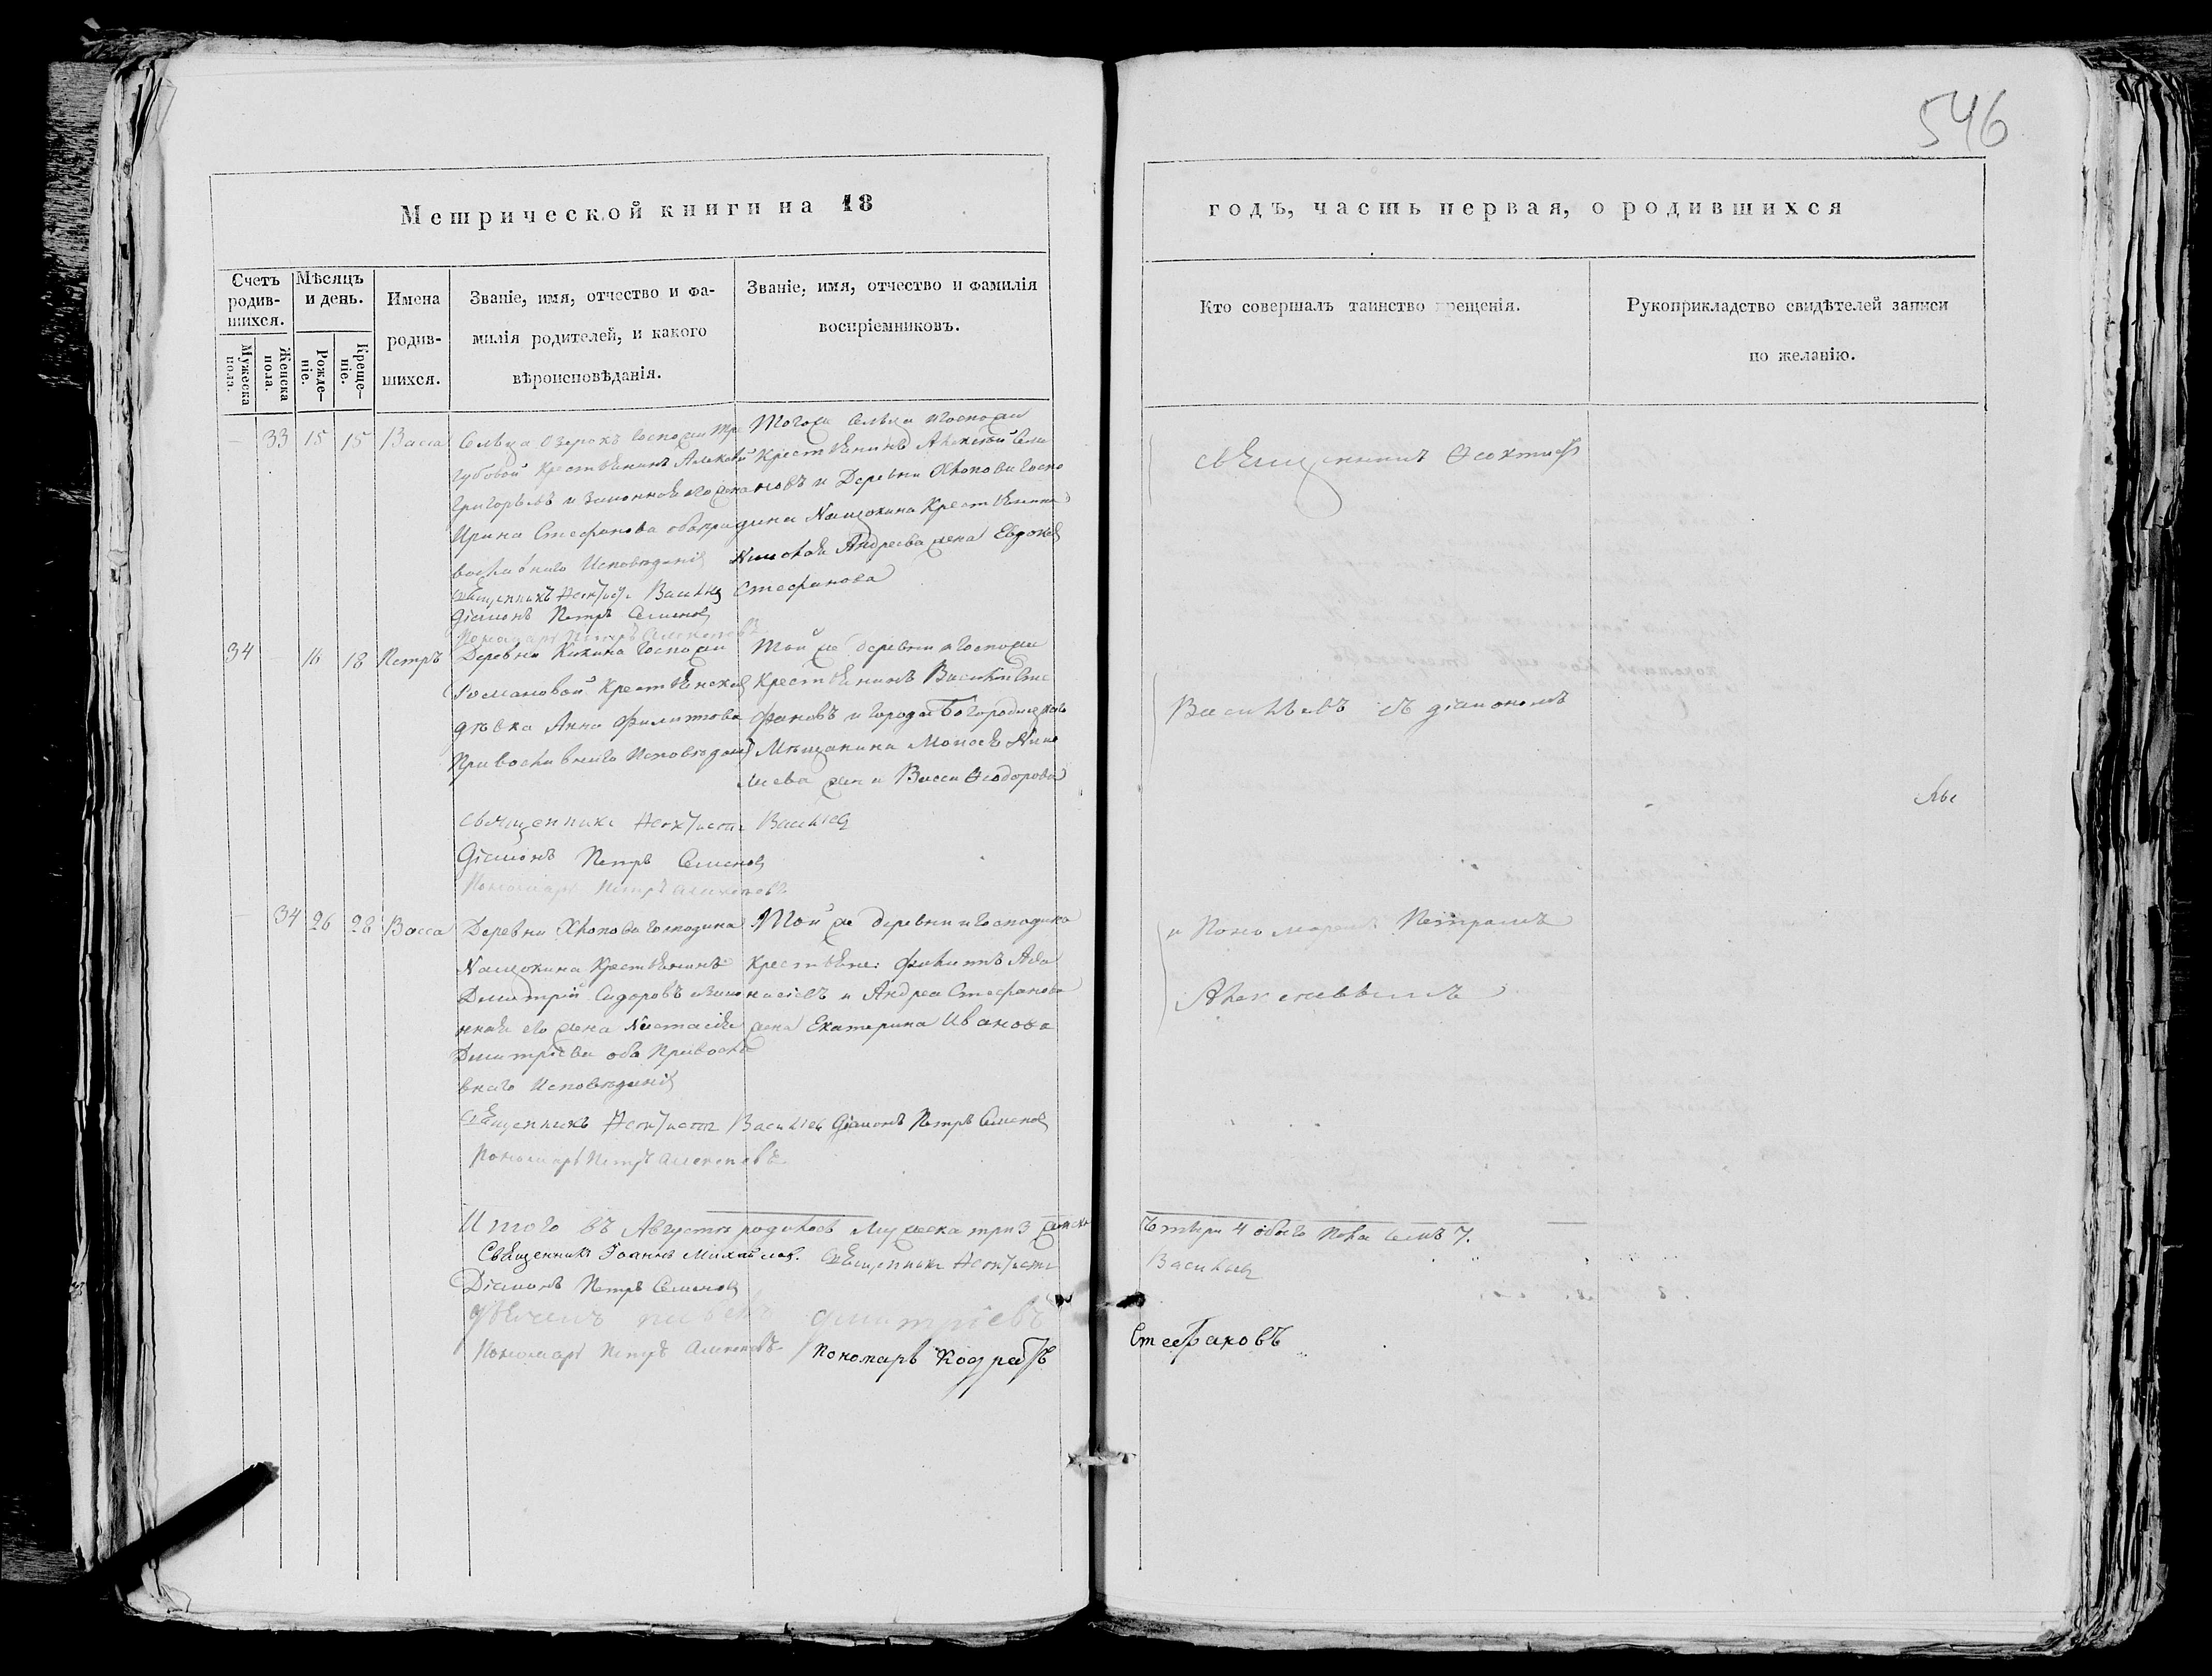 546
Метрической книги на 18
годъ, часть первая, о родившихся
Счетъ родив-шихся.
Мужеска пола.
Женска пола.
Мѣсяцъ и день.
Рожде-ніе.
Креще-ніе.
Имена
родив-
шихся.
Званіе, имя, отчество и фа-
милія родителей, и какого
вѣроисповѣданія.
Званіе, имя, отчество и фамилія
воспріемниковъ.
Кто совершалъ таинство крещенія.
Рукоприкладство свидѣтелей записи
по желанію.
33 15 15 Васса
Сельца Озерокъ Госпожи
Крестьянинъ Алексѣй
Григорьевъ и законная его жена
Ирина Стефанова оба пра
вославнаго Исповѣданія
Священникъ Ѳеоктистъ Васильевъ
Діаконъ Петръ Семеновъ
Пономарь Петръ Алексеевъ
Тогожъ сельца Госпожи
Крестьянинъ Алексѣй Семе
новъ и Деревни Хлопова Госпо
дина Нащокина Крестьянина
Андреева жена Евдокия
Стефанова
Священникъ Ѳеоктистъ
34 16 18 Петръ
Деревни Кикина Госпожи
Крестьянская
дѣвка Анна Филиппова
Православнаго Исповѣданія
Священникъ Ѳеоктистъ Васильевъ
Діаконъ Петръ Семеновъ
Пономарь Петръ Алексеевъ
Той же деревни и Госпожи
Крестьянинъ Василій Сте
фановъ и города Богородицкаго
Мѣщанина Моисея
жена Васса Ѳеодорова
Васильевъ съ діакономъ
34 26 28 Васса
Деревни Хлопова Господина
Нащокина Крестьянинъ
Димитрій Сидоровъ и закон
ная его жена Настасія
Дмитріева оба Правосла
внаго Исповѣданія
Священникъ Ѳеоктистъ Васильевъ Діаконъ Петръ Семеновъ
Пономарь Петръ Алексеевъ
Той же деревни и Господина
Крестьяне: Филиппъ Афа
насіевъ и Андрея Стефанова
жена Екатерина Иванова
и Пономаремъ Петромъ
Алексеевымъ
Итого въ Августѣ родилось Мужеска три 3 женска
четыри 4 обоего пола семь 7.
Священникъ Іоаннъ Михайловъ. Священникъ Ѳеоктистъ
Васильевъ
Діаконъ Петръ Семеновъ
Дмитріевъ
Пономарь Петръ Алексеевъ Пономарь Кодратъ
Стефановъ